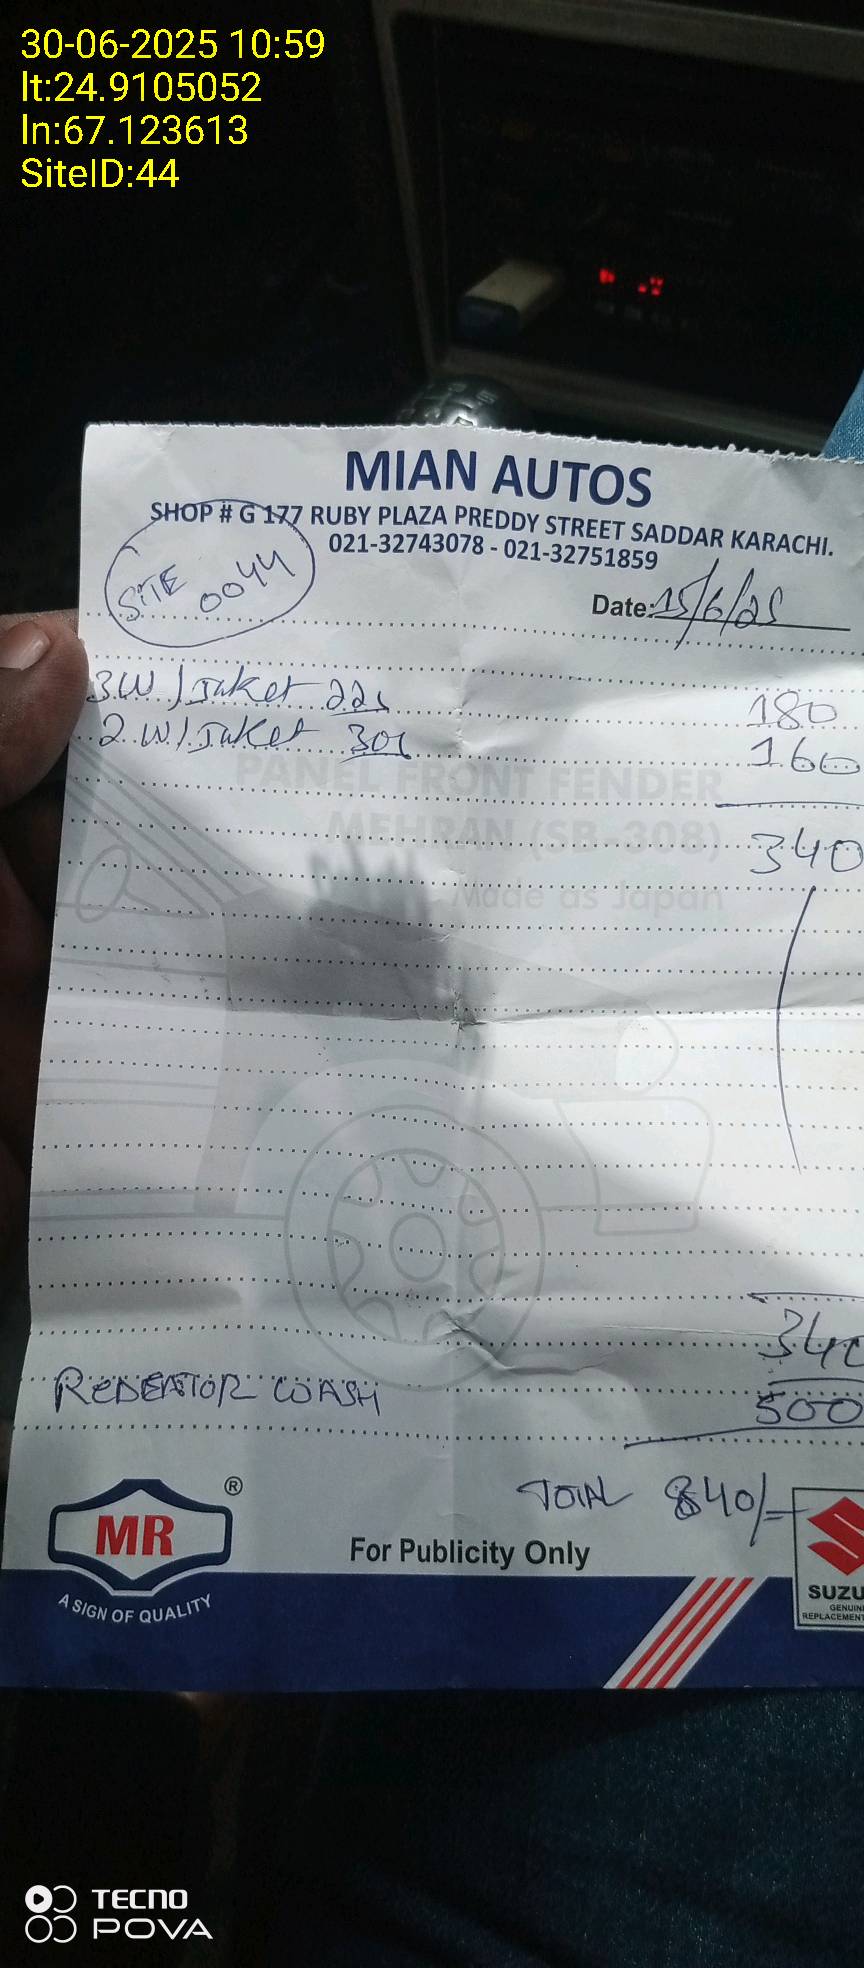 30-06-2025 10:59
lt:24.9105052
ln:67.123613
SiteID:44
MIAN AUTOS
SHOP # G 177 RUBY PLAZA PREDDY STREET SADDAR KARACHI.
021-32743078 - 021-32751859
SITE 0044
Date: 15/6/25
3 W/Jaket 180
2 W/Jaket 160
PANEL FRONT FENDER
MEHRAN (SB-308)
Made as Japan
340
340
REDEATOR WASH 500
TOTAL 840/=
MR
®
A SIGN OF QUALITY
For Publicity Only
SUZU
GENUIN
REPLACEMENT
TECNO
POVA